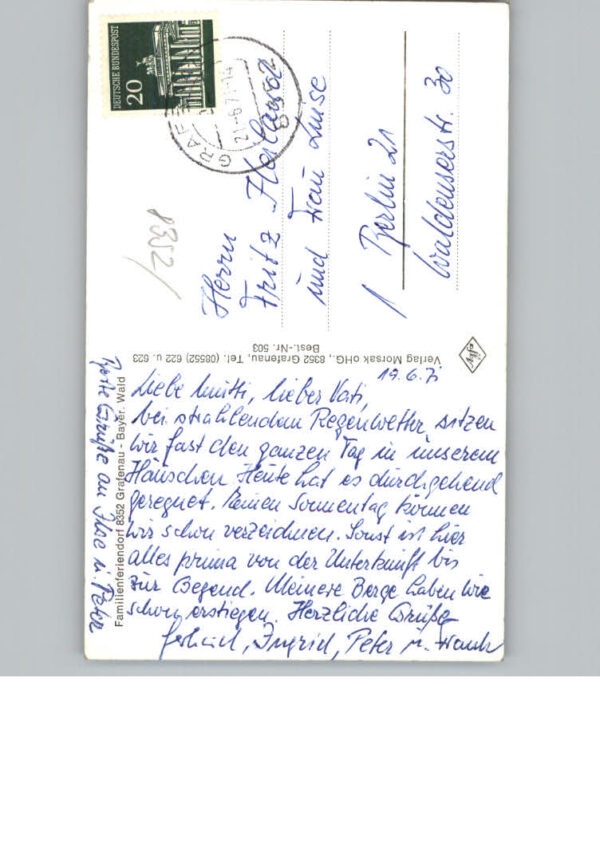 DEUTSCHE BUNDESPOST
20
21.-6.71-14
8352
8352
Herrn
Fritz
und Frau Luise
1 Berlin 21
Waldenserstr. 30
Verlag Morsak oHG., 8352 Grafenau, Tel. (08552) 622 u. 623
Best.-Nr. 503
Familienferiendorf 8352 Grafenau - Bayer. Wald
19.6.71
Liebe Mutti, lieber Vati,
bei strahlendem Regenwetter sitzen
wir fast den ganzen Tag in unserem
Häuschen. Heute hat es durchgehend
geregnet. Keinen Sonnentag können
wir schon verzeichnen. Sonst ist hier
alles prima von der Unterkunft bis
zur Gegend. Kleinere Berge haben wir
schon erstiegen. Herzliche Grüße
Ingrid, Peter u. Frank
Grüße an Ilse u. Peter